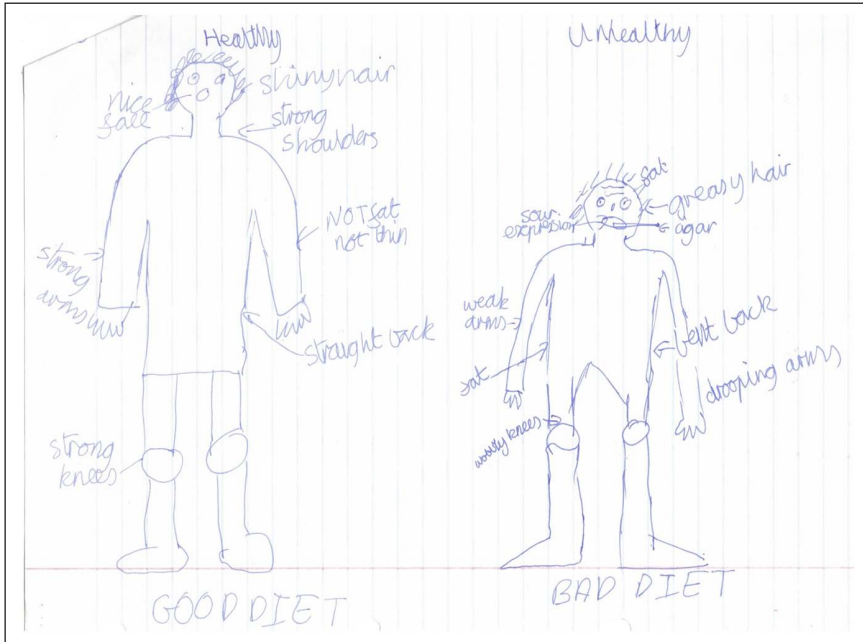 Healthy
shiny hair
nice
face
strong
shoulders
NOT fat
not thin
strong
arms
straight back
strong
knees
GOOD DIET
Unhealthy
fat
greasy hair
sour
expression
agar
weak
arms
bent back
fat
drooping arms
knees
BAD DIET